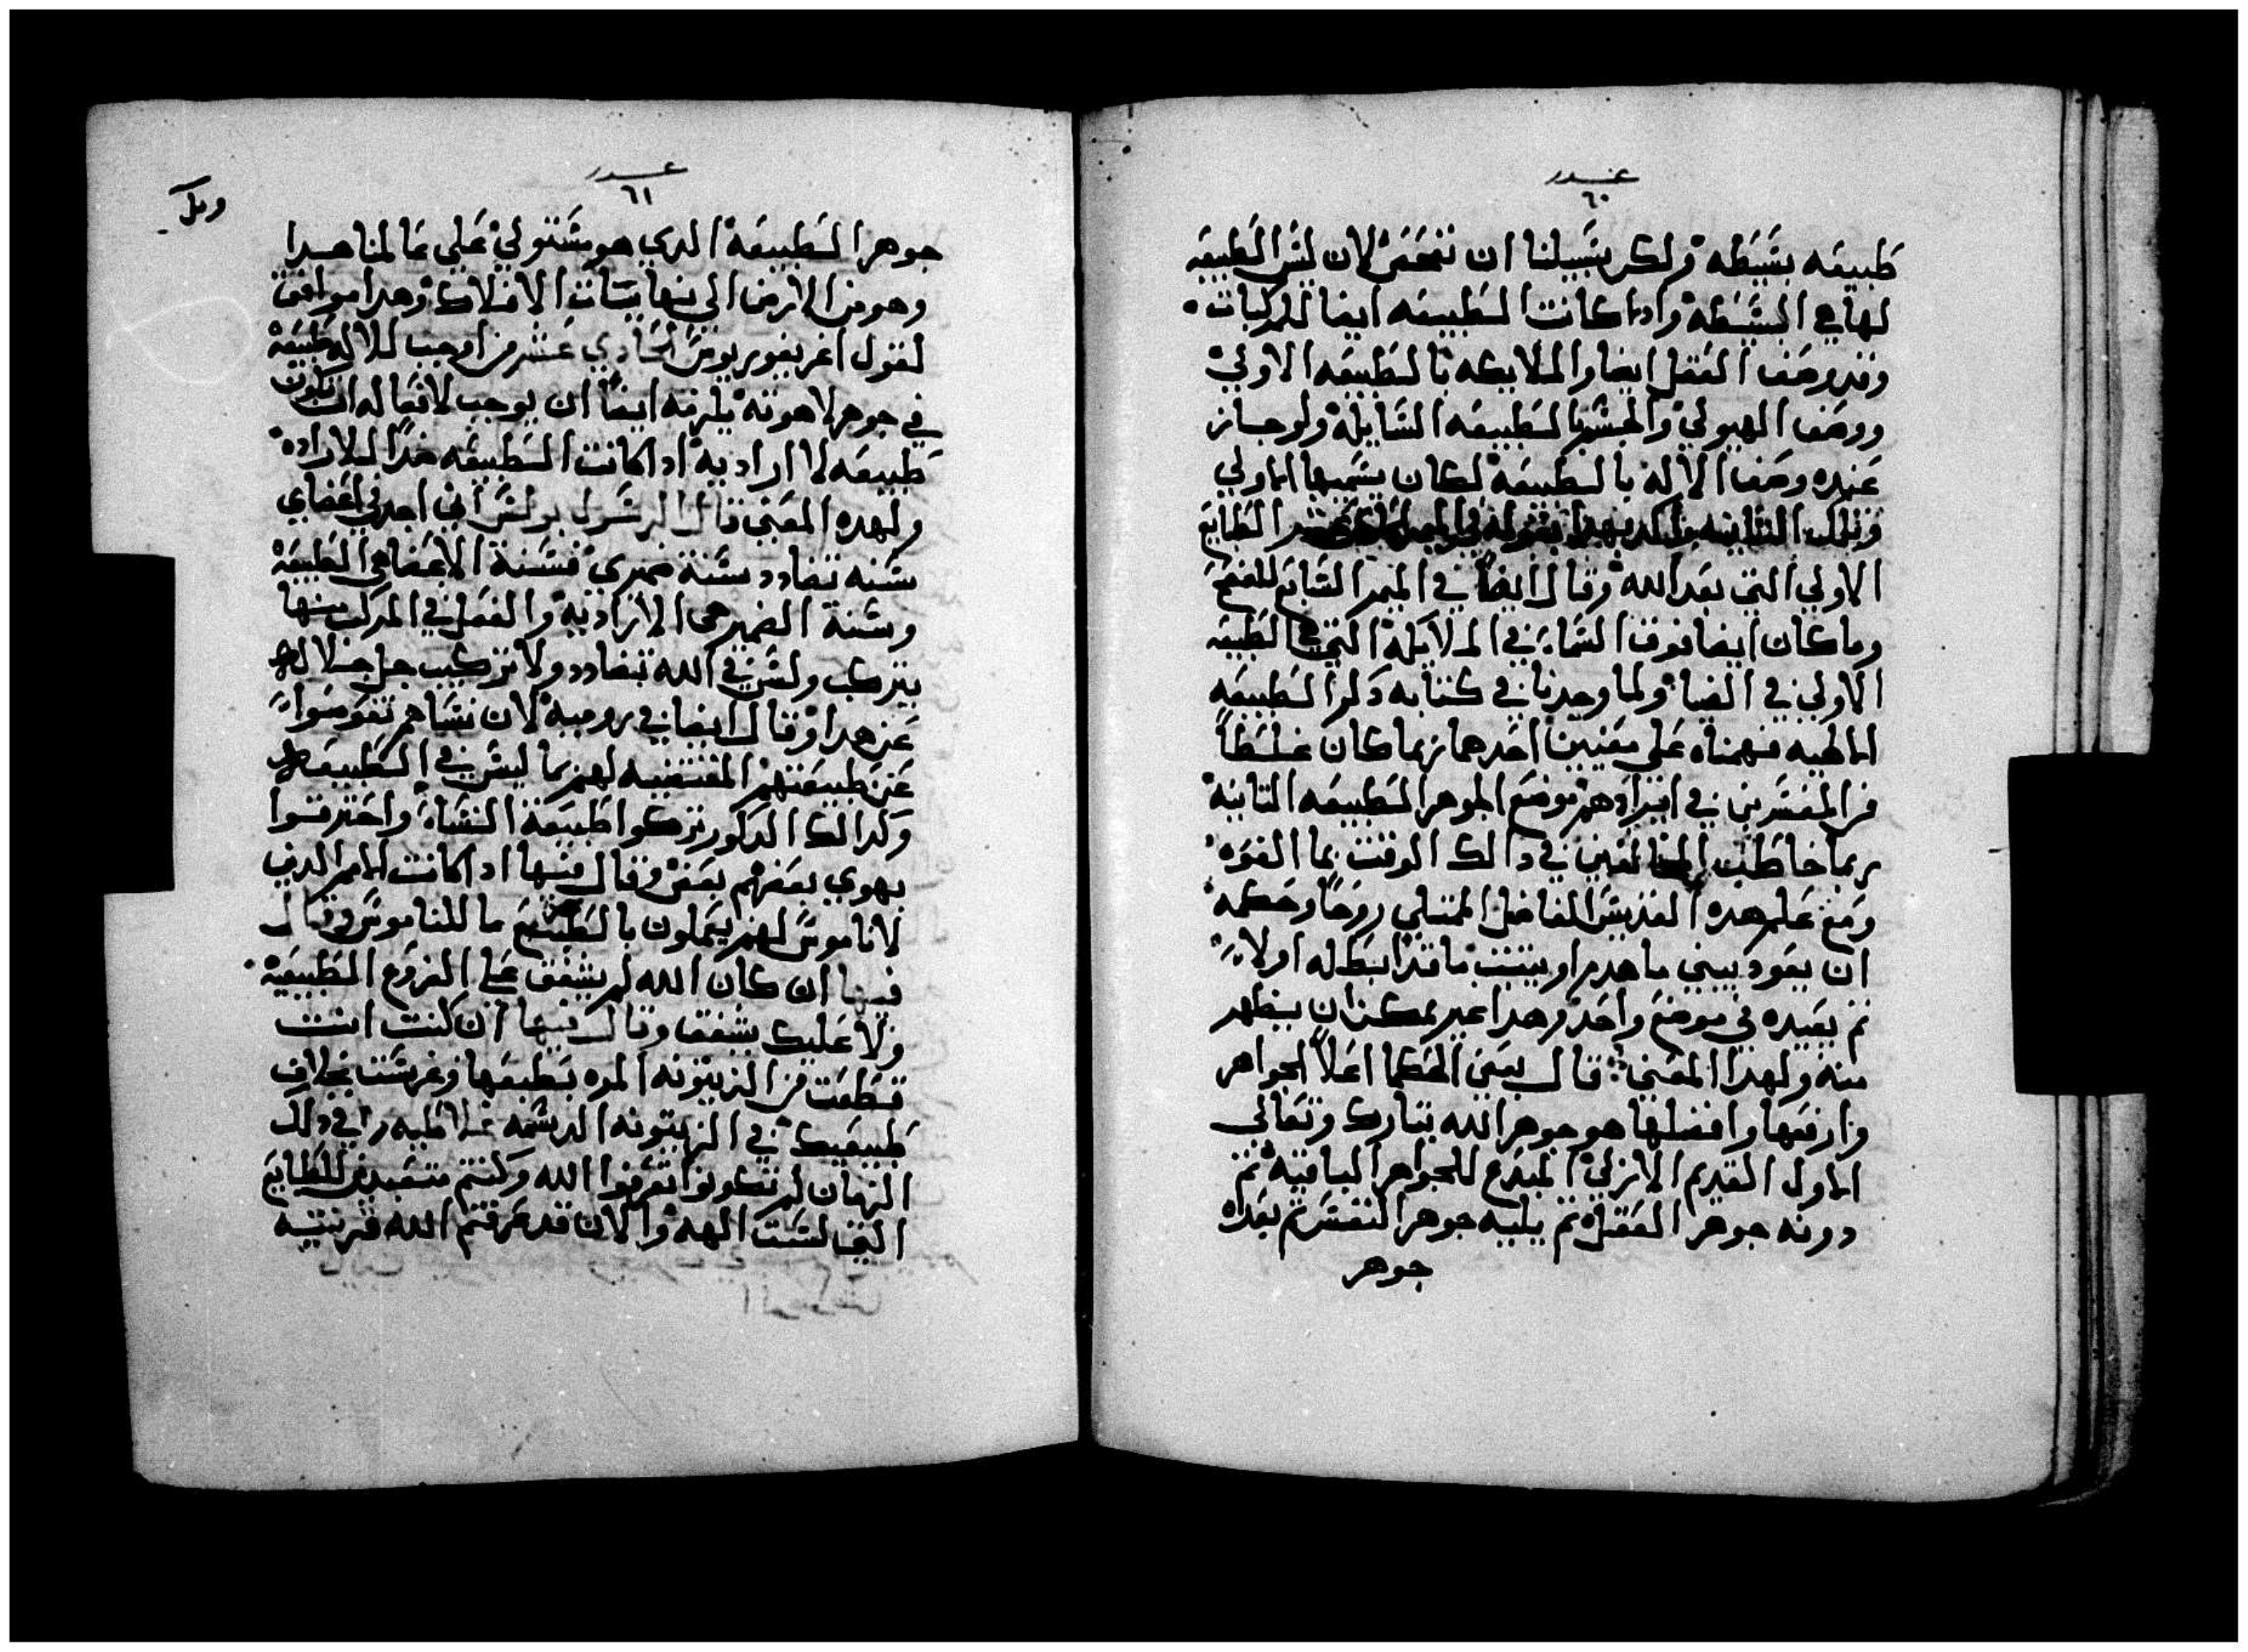 ٦٠
طبيعه بسيطه ولكن سبيلنا ان نفحص لان ليس الطبيعه
لها هي البسيطه واذا كانت الطبيعه ايضا للمركبات
وقد وصف العقل ايضا والملايكه بالطبيعه الاولي
ووصف الهيولي والجسم بالطبيعه السايله ولو جاز
عنده وصف الاله بالطبيعه لكان يسميها الاولي
وتلك الثانيه الطبايع
الاولي التي بعد الله وقال ايضا في الميمر السابع للفصح
وما كان ايضا فوق السماء في الملايكه التي هي الطبيعه
الاولي في الضيا ولما وجدنا في كتابه ذكر الطبيعه
الالهيه فهمناه علي معنيين احدهما ربما كان غلطاً
من المفسرين في ايرادهم موضع الجوهر الطبيعه الثانيه
ربما خاطب المخالفين في دالك الوقت بما الفوه
ومع علم هده القديس الفاضل الممتلي روحاً وحكمه
ان يعود يبني ما هدم او يثبت ما قد ابطله اولاً
ثم يعيده في موضع واحد وهدا غير ممكن ان يظهر
منه ولهدا المعني قال بعض الحكما اعلا الجواهر
وارفعها وافضلها هو جوهر الله تبارك وتعالي
الاول القديم الازلي المبدع للجواهر الباقيه ثم
دونه جوهر العقل ثم يليه جوهر النفس ثم بعده
جوهر
٦١
جوهر الطبيعه الدي هو مستولي علي عالمنا هدا
وهو من الارض الي نهايات الافلاك وهدا موافق
لقول اغريغوريوس الحادي عشر من اوجب للاله طبيعه
في جوهر لاهوته يلزمه ايضاً ان يوجب لافعاله ان تكون
طبيعه لا اراديه ادا كانت الطبيعه ضداً للاراده
ولهده المعني قال الرسول بولس اني اجد في اعضاي
سنه تضادد سنة ضميري فسنة الاعضا هي الطبيعه
وسنة الضمير هي الاراديه والفعل في المركب منها
يتركب وليس في الله تضادد ولا تركيب جل جلاله
عن هدا وقال ايضا في روميه لان نساهم تعوضوا
عن طبيعتهم المقتنيه لهم بما ليس في الطبيعه
وكدالك الدكور تركوا طبيعة النساء واحترقوا
بهوي بعضهم بعض وقال فيها ادا كانت الامم الدين
لا ناموس لهم يعملون بالطبع ما للناموس وقال
فيها ان كان الله لم يشفق علي الفروع الطبيعيه
ولا عليك يشفق وقال فيها ان كنت انت
قطعت من الزيتونه المره بطبعها وغرست بخلاف
طبيعتك في الزيتونه الدسمه غلاطيه في دلك
الزمان لم تكونوا تعرفوا الله وكنتم متعبدين للطبايع
التي ليست الهه والان قد عرفتم الله